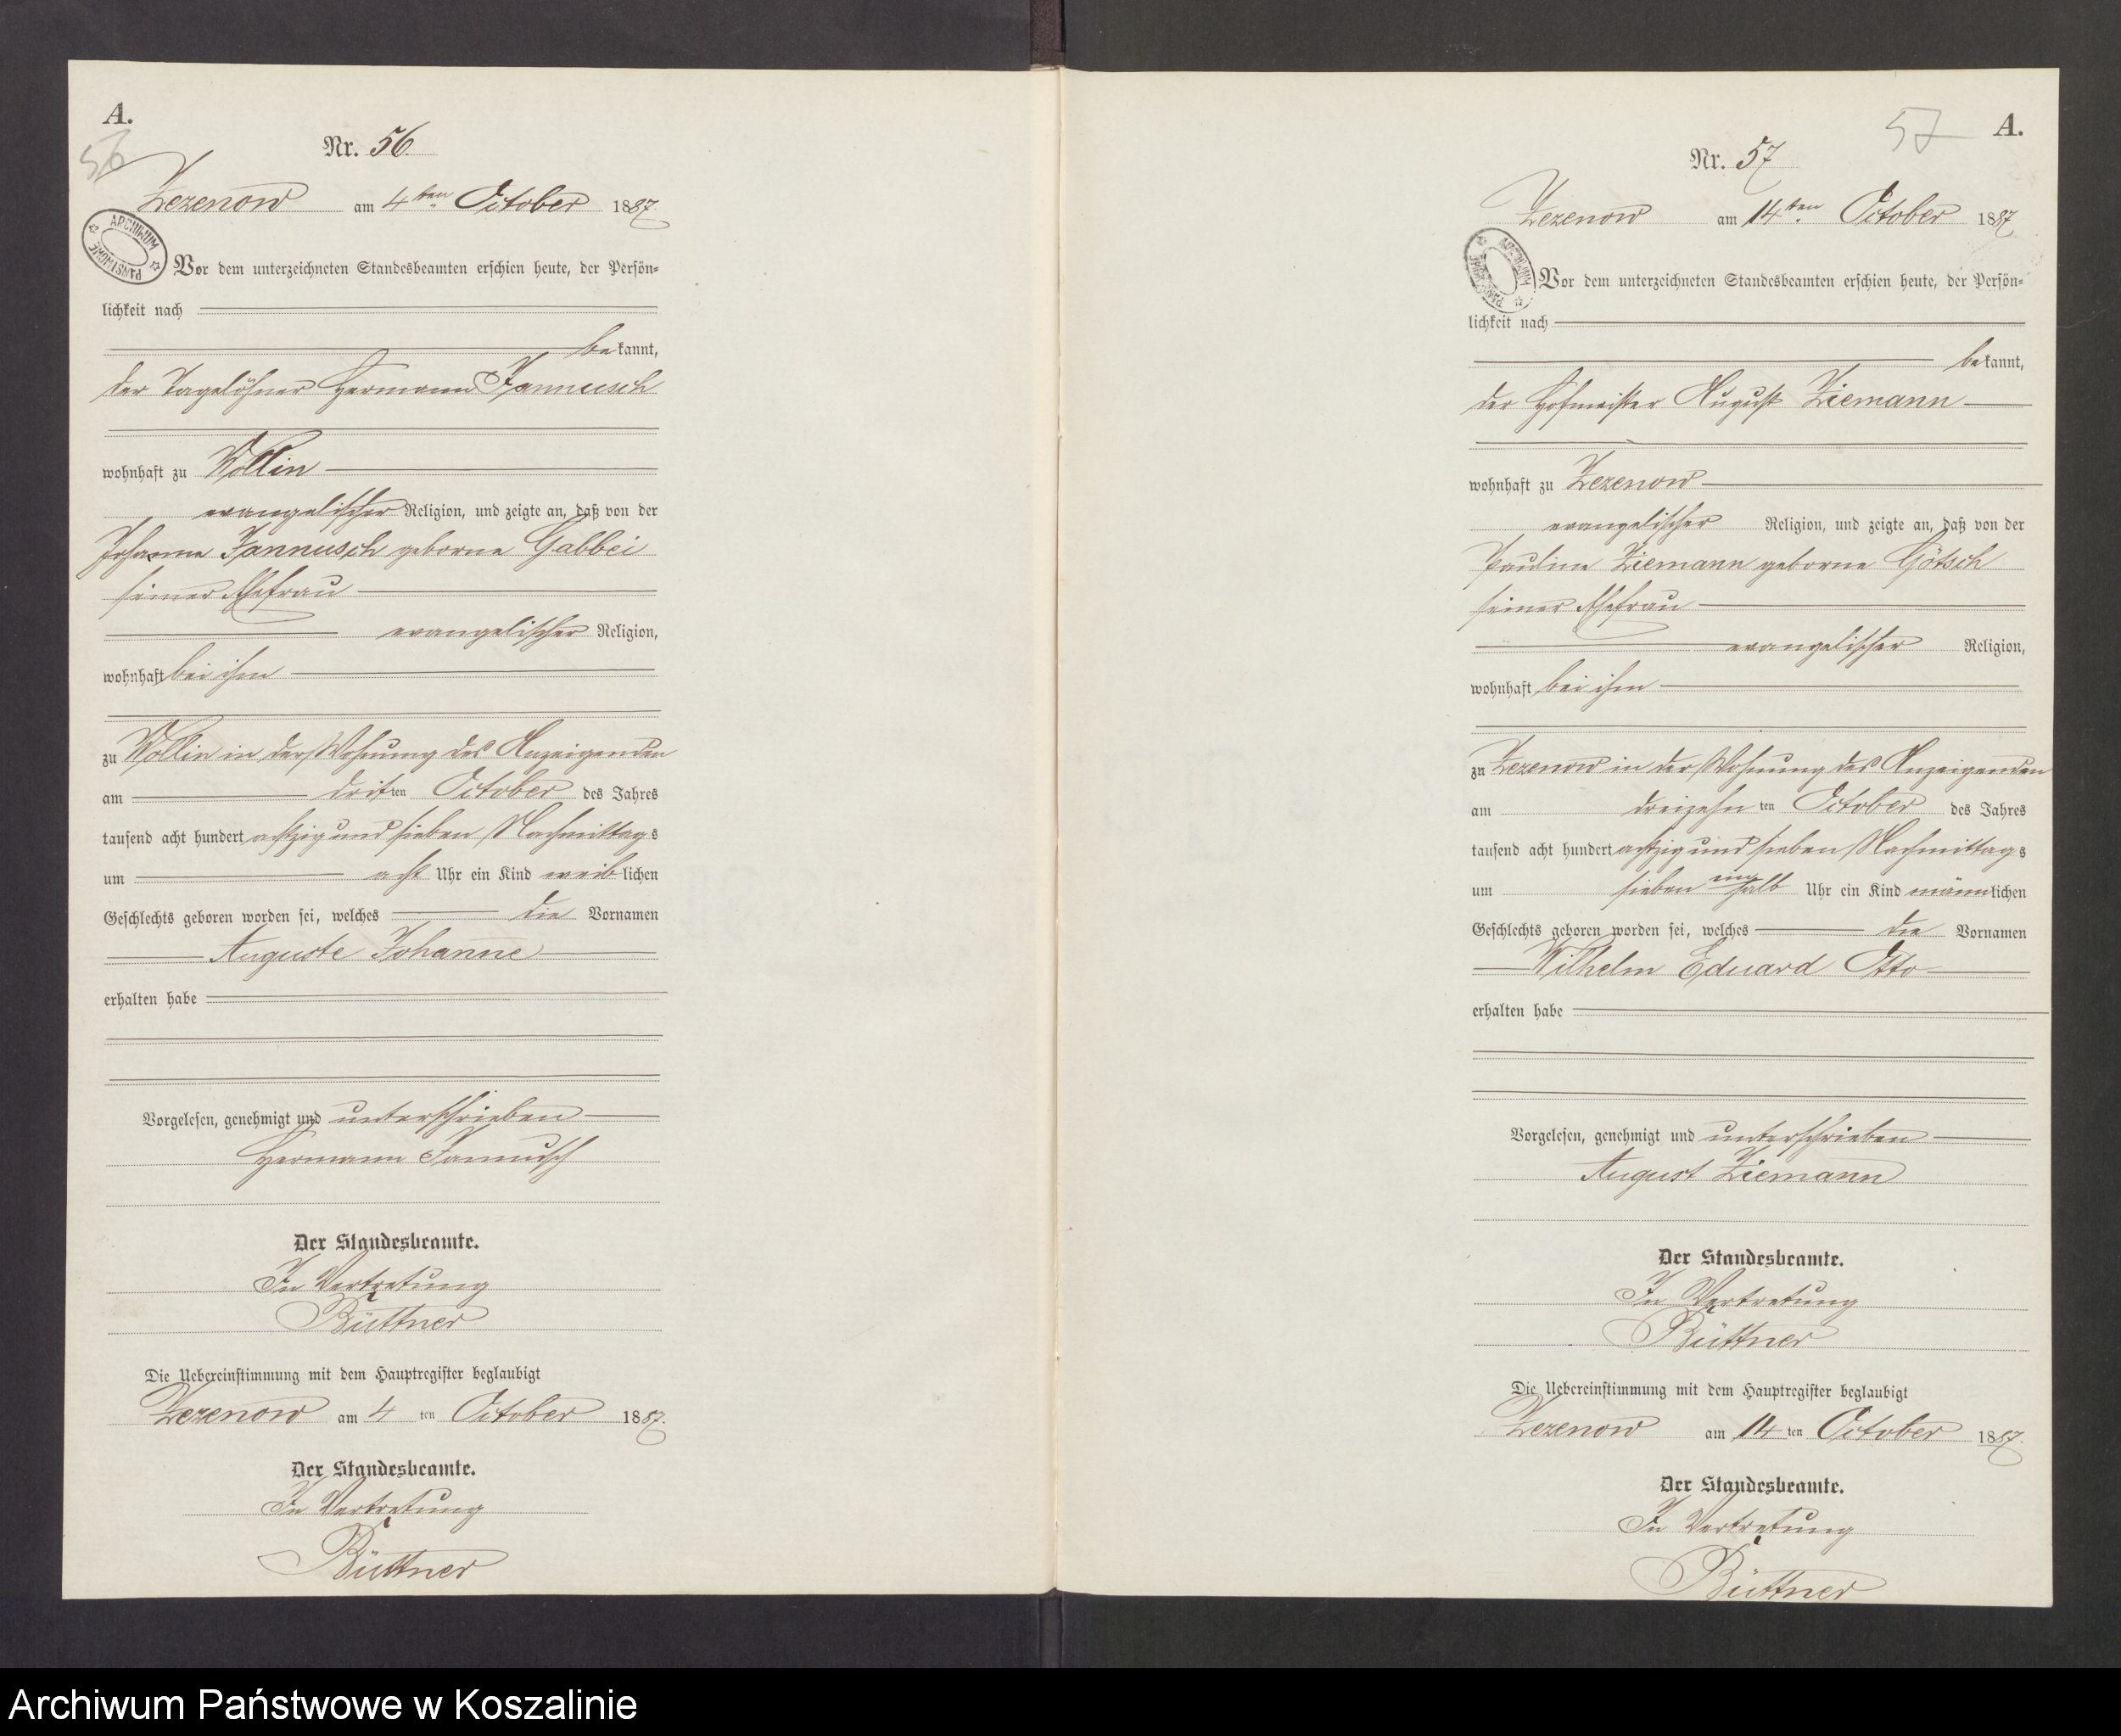 A.
56
Nr. 56.
Zezenow am 4ten October 1887
ARCHIWUM PAŃSTWOWE
Vor dem unterzeichneten Standesbeamten erschien heute, der Persön=
lichkeit nach
bekannt,
der Tagelöhner Hermann Jannusch
wohnhaft zu Wollin
evangelischer Religion, und zeigte an, daß von der
Johanne Jannusch geborne Gabbei
seiner Ehefrau
evangelischer Religion,
wohnhaft bei ihm
zu Wollin in der Wohnung des Anzeigenden
am dritten October des Jahres
tausend acht hundert achtzig und sieben Nachmittags
um acht Uhr ein Kind weiblichen
Geschlechts geboren worden sei, welches die Vornamen
Auguste Johanne
erhalten habe
Vorgelesen, genehmigt und unterschrieben
Hermann Jannusch
Der Standesbeamte.
In Vertretung
Büttner
Die Uebereinstimmung mit dem Hauptregister beglaubigt
Zezenow am 4 ten October 1887.
Der Standesbeamte.
In Vertretung
Büttner
57
A.
Nr. 57
Zezenow am 14ten October 1887
ARCHIWUM PAŃSTWOWE
Vor dem unterzeichneten Standesbeamten erschien heute, der Persön=
lichkeit nach
bekannt,
der Hofmeister August Ziemann
wohnhaft zu Zezenow
evangelischer Religion, und zeigte an, daß von der
Pauline Ziemann geborne Götsch
seiner Ehefrau
evangelischer Religion,
wohnhaft bei ihm
zu Zezenow in der Wohnung des Anzeigenden
am dreizehnten October des Jahres
tausend acht hundert achtzig und sieben Nachmittags
um sieben einhalb Uhr ein Kind männlichen
Geschlechts geboren worden sei, welches die Vornamen
Wilhelm Eduard Otto
erhalten habe
Vorgelesen, genehmigt und unterschrieben
August Ziemann
Der Standesbeamte.
In Vertretung
Büttner
Die Uebereinstimmung mit dem Hauptregister beglaubigt
Zezenow am 14 ten October 1887.
Der Standesbeamte.
In Vertretung
Büttner
Archiwum Państwowe w Koszalinie